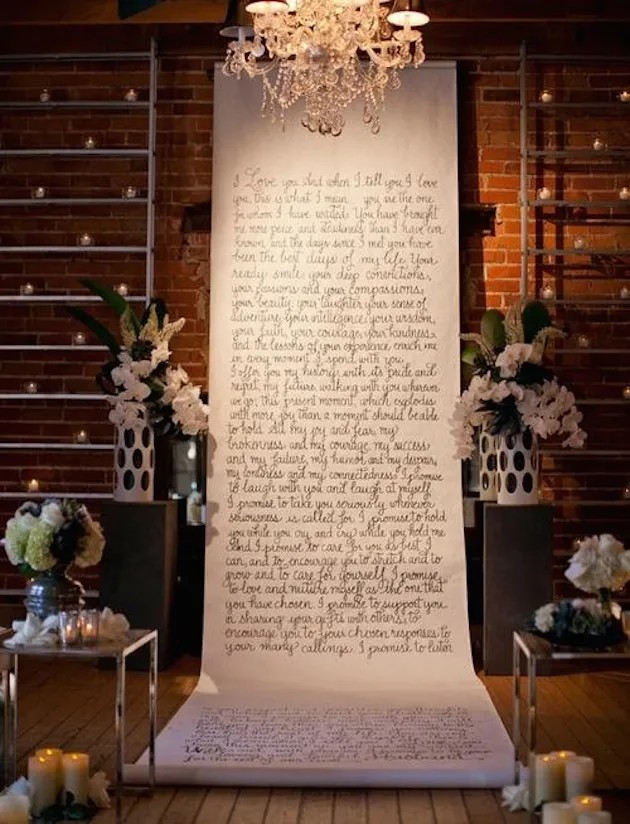 I Love you. And when I tell you I love
you, this is what I mean: you are the one
for whom I have waited. You have brought
me more peace and steadiness than I have ever
known, and the days since I met you have
been the best days of my life. Your
ready smile, your deep convictions,
your passions and your compassions,
your beauty, your laughter, your sense of
adventure, your intelligence, your wisdom,
your faith, your courage, your kindness,
and the lessons of your experience enrich me
in every moment I spend with you.
I offer you my history, with its pride and
regret, my future, walking with you wherever
we go; this present moment, which explodes
with more joy than a moment should be able
to hold. All my joy and fear, my
brokenness and my courage, my success
and my failure, my humor and my despair,
my loneliness and my connectedness. I promise
to laugh with you and laugh at myself.
I promise to take you seriously whenever
seriousness is called for. I promise to hold
you while you cry and cry while you hold me.
And I promise to care for you as best I
can, and to encourage you to stretch and to
grow and to care for yourself. I promise
to love and nurture myself as the one that
you have chosen. I promise to support you
in sharing your gifts with others, to
encourage you to your chosen responses to
your many callings. I promise to listen